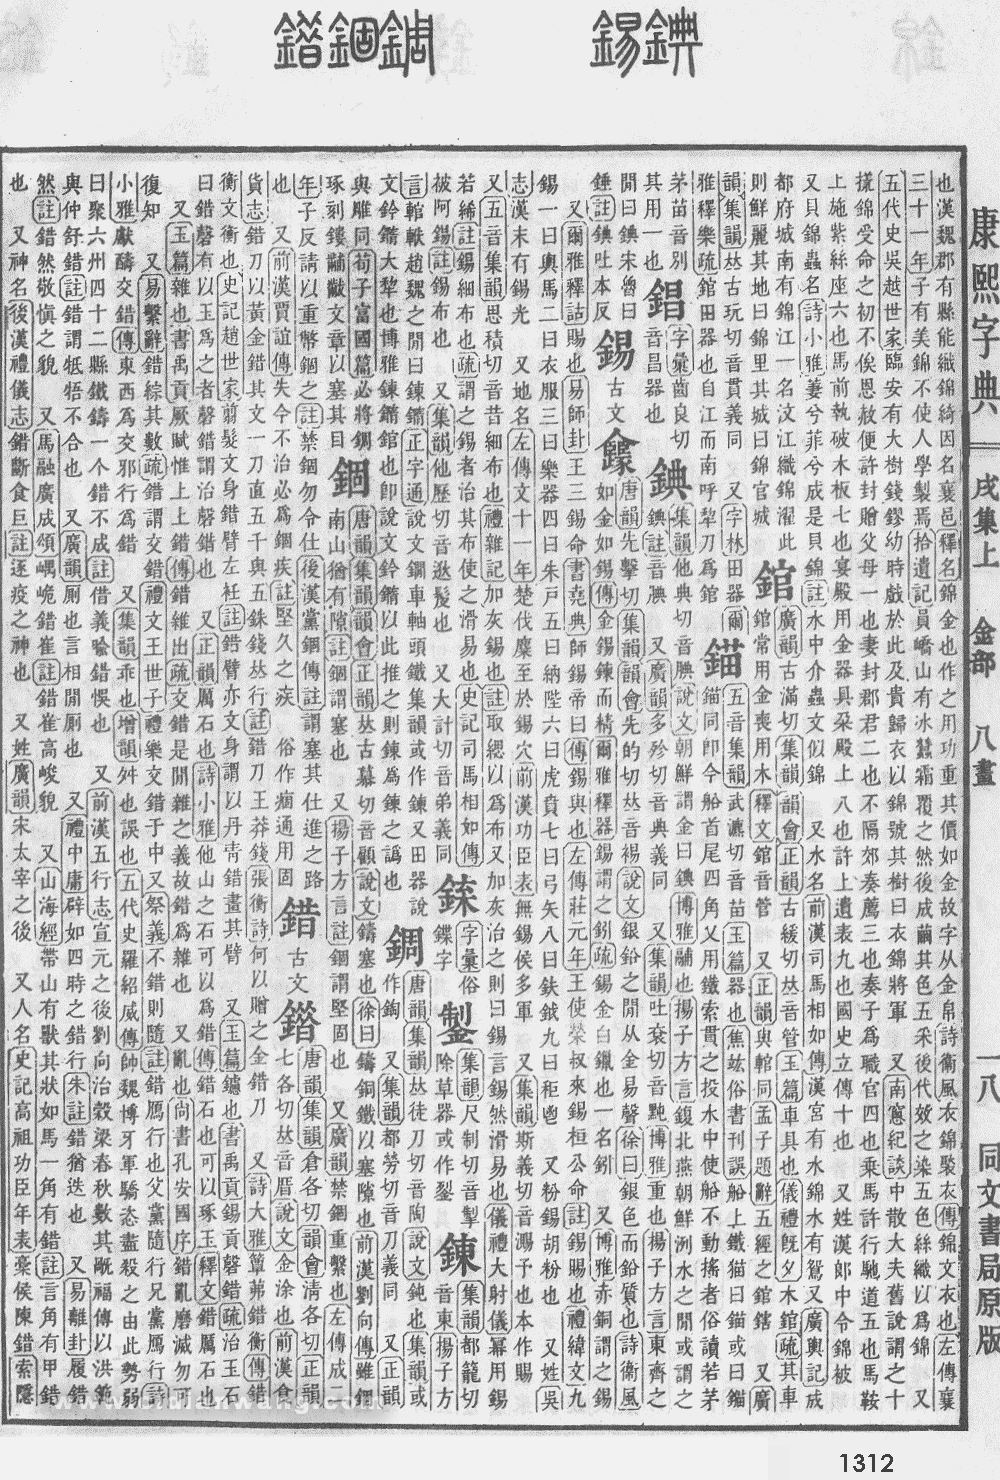 錫錪
錯錮錭
康熙字典 戌集上 金部 八畫 一八 同文書局原版
也漢魏郡有縣能織錦綺因名襄邑釋名錦金也作之用功重其價如金故字从金帛詩衞風衣錦褧衣傳錦文衣也左傳襄
三十一年子有美錦不使人學製焉拾遺記員嶠山有冰蠶霜覆之然後成繭其色五采後代效之染五色絲織以爲錦 又
五代史吳越世家臨安有大樹錢鏐幼時戲於此及貴歸衣以錦號其樹曰衣錦將軍 又南窻紀談中散大夫舊說謂之十
樣錦受命之初不俟恩赦便許封贈父母一也妻封郡君二也不隔郊奏薦三也奏子爲職官四也乘馬許行馳道五也馬鞍
上施紫絲座六也馬前執破木板七也宴殿用金器具朶殿上八也許上遺表九也國史立傳十也 又姓漢郞中令錦被
又貝錦蟲名詩小雅萋兮菲兮成是貝錦註水中介蟲文似錦 又水名前漢司馬相如傳漢宮有水錦水有鴛又廣輿記成
都府城南有錦江一名汶江織錦濯此
則鮮麗其地曰錦里其城曰錦官城 錧 廣韻古滿切集韻韻會正韻古緩切𠀤音管玉篇車具也儀禮旣夕木錧疏其車錧常用金喪用木釋文錧音管 又正韻與輨同孟子題辭五經之錧鎋 又廣
韻集韻𠀤古玩切音貫義同 又字林田器爾
雅釋樂疏錧田器也自江而南呼犂刀爲錧 錨 五音集韻武瀌切音苗玉篇器也焦竑俗書刊誤船上鐵猫曰錨或曰鎦錨同卽今船首尾四角乂用鐵索貫之投水中使船不動搖者俗讀若茅
茅苗音別
其用一也 錩 字彙齒良切音昌器也 錪 集韻他典切音腆說文朝鮮謂釜曰錪博雅鬴也揚子方言鍑北燕朝鮮洌水之閒或謂之錪註音腆 又廣韻多殄切音典義同 又集韻吐袞切音黗博雅重也揚子方言東齊之
閒曰錪宋魯曰
錘註錪吐本反 錫 古文䥕 唐韻先擊切集韻韻會先的切𠀤音裼說文銀鉛之閒从金易聲徐曰銀色而鉛質也詩衞風如金如錫傳金錫鍊而精爾雅釋器錫謂之鈏疏錫金白鑞也一名鈏 又博雅赤銅謂之錫
又爾雅釋詁賜也易師卦王三錫命書堯典師錫帝曰傳錫與也左傳莊元年王使榮叔來錫桓公命註錫賜也禮緯文九
錫一曰輿馬二曰衣服三曰樂器四曰朱戸五曰納陛六曰虎賁七曰弓矢八曰鈇鉞九曰秬鬯 又粉錫胡粉也 又姓吳
志漢末有錫光 又地名左傳文十一年楚伐麇至於錫穴前漢功臣表無錫侯多軍 又集韻斯義切音澌予也本作賜
又五音集韻思積切音昔細布也禮雜記加灰錫也註取緦以爲布又加灰治之則曰錫言錫然滑易也儀禮大射儀冪用錫
若絺註錫細布也疏謂之錫者治其布使之滑易也史記司馬相如傳
被阿錫註錫布也 又集韻他歷切音逖髲也 又大計切音弟義同 錸 字彙俗鏁字 鏨 集韻尺制切音掣除草器或作㓨 錬 集韻都籠切音東揚子方
言輨軑趙魏之閒曰錬鏅正字通說文錭車軸頭鐵集韻或作錬又田器說
文鈐鏅大犂也博雅錬鏅錧也卽說文鈐鏅以此推之則錬爲鍊之譌也 錭 唐韻集韻𠀤徒刀切音陶說文鈍也集韻或作䤾 又集韻都勞切音刀義同 又正韻
與雕同荀子富國篇必將錭
琢刻鏤黼黻文章以塞其目 錮 唐韻集韻韻會正韻𠀤古慕切音顧說文鑄塞也徐曰鑄銅鐵以塞隙也前漢劉向傳雖錮南山猶有隙註錮謂塞也 又揚子方言註錮謂堅固也 又廣韻禁錮重繫也左傳成二
年子反請以重幣錮之註禁錮勿令仕後漢黨錮傳註謂塞其仕進之路
也 又前漢賈誼傳失今不治必爲錮疾註堅久之疾 俗作痼通用固 錯 古文鐕 唐韻集韻倉各切韻會淸各切正韻七各切𠀤音厝說文金涂也前漢食
貨志錯刀以黃金錯其文一刀直五千與五銖錢𠀤行註錯刀王莽錢張衡詩何以贈之金錯刀 又詩大雅簟茀錯衡傳錯
衡文衡也史記趙世家前髮文身錯臂左衽註錯臂亦文身謂以丹靑錯畫其臂 又玉篇鑢也書禹貢錫貢磬錯疏治玉石
曰錯磬有以玉爲之者磬錯謂治磬錯也 又正韻厲石也詩小雅他山之石可以爲錯傳錯石也可以琢玉釋文錯厲石也
又玉篇雜也書禹貢厥賦惟上上錯傳錯雜出疏交錯是閒雜之義故錯爲雜也 又亂也尚書孔安國序錯亂磨滅勿可
復知 又易繫辭錯綜其數疏錯謂交錯禮文王世子禮樂交錯于中又祭義不錯則隨註錯鴈行也父黨隨行兄黨鴈行詩
小雅獻醻交錯傳東西爲交邪行爲錯 又集韻乖也增韻舛也誤也五代史羅紹威傳師魏博牙軍驕恣盡殺之由此勢弱
曰聚六州四十二縣鐵鑄一个錯不成註借義喩錯悞也 又前漢五行志宣元之後劉向治穀梁春秋數其旤福傳以洪範
與仲舒錯註錯謂牴牾不合也 又廣韻厠也言相閒厠也 又禮中庸辟如四時之錯行朱註錯猶迭也 又易離卦履錯
然註錯然敬愼之貌 又馬融廣成頌嵎㟴錯崔註錯崔高峻貌 又山海經帶山有獸其狀如馬一角有錯註言角有甲錯
也 又神名後漢禮儀志錯斷食巨註逐疫之神也 又姓廣韻宋太宰之後 又人名史記高祖功臣年表槀侯陳錯索隱
1312